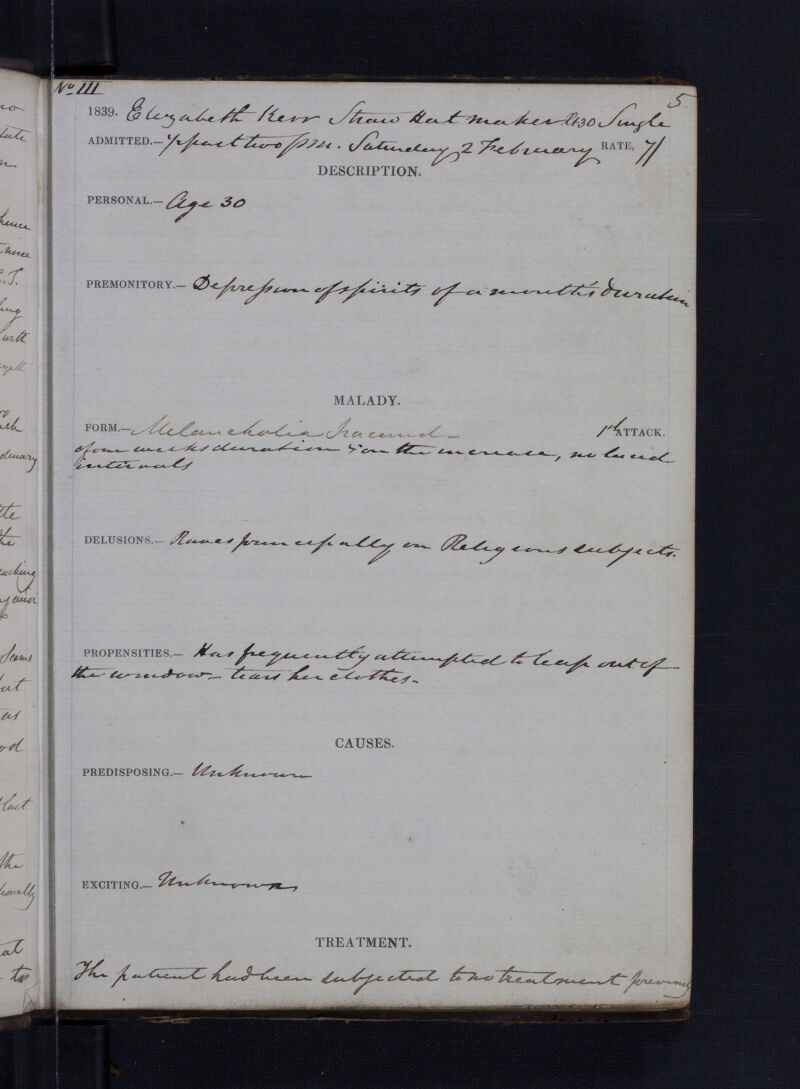 No III
5
1839. Elizabeth Kerr Straw Hat maker Æ 30 Single
ADMITTED.— ½ past two p.m. Saturday 2 February RATE, 7/
DESCRIPTION.
PERSONAL.— Age 30
PREMONITORY.— Depression of spirits of a month's duration
MALADY.
FORM.— Melancholia 1st ATTACK.
of one weeks duration & on the increase, no lucid
intervals
DELUSIONS.— Raves principally on Religious subjects.
PROPENSITIES.— Has frequently attempted to leap out of
the window – tears her clothes –
CAUSES.
PREDISPOSING.— Unknown
EXCITING.— Unknown
TREATMENT.
The patient had been subjected to no treatment